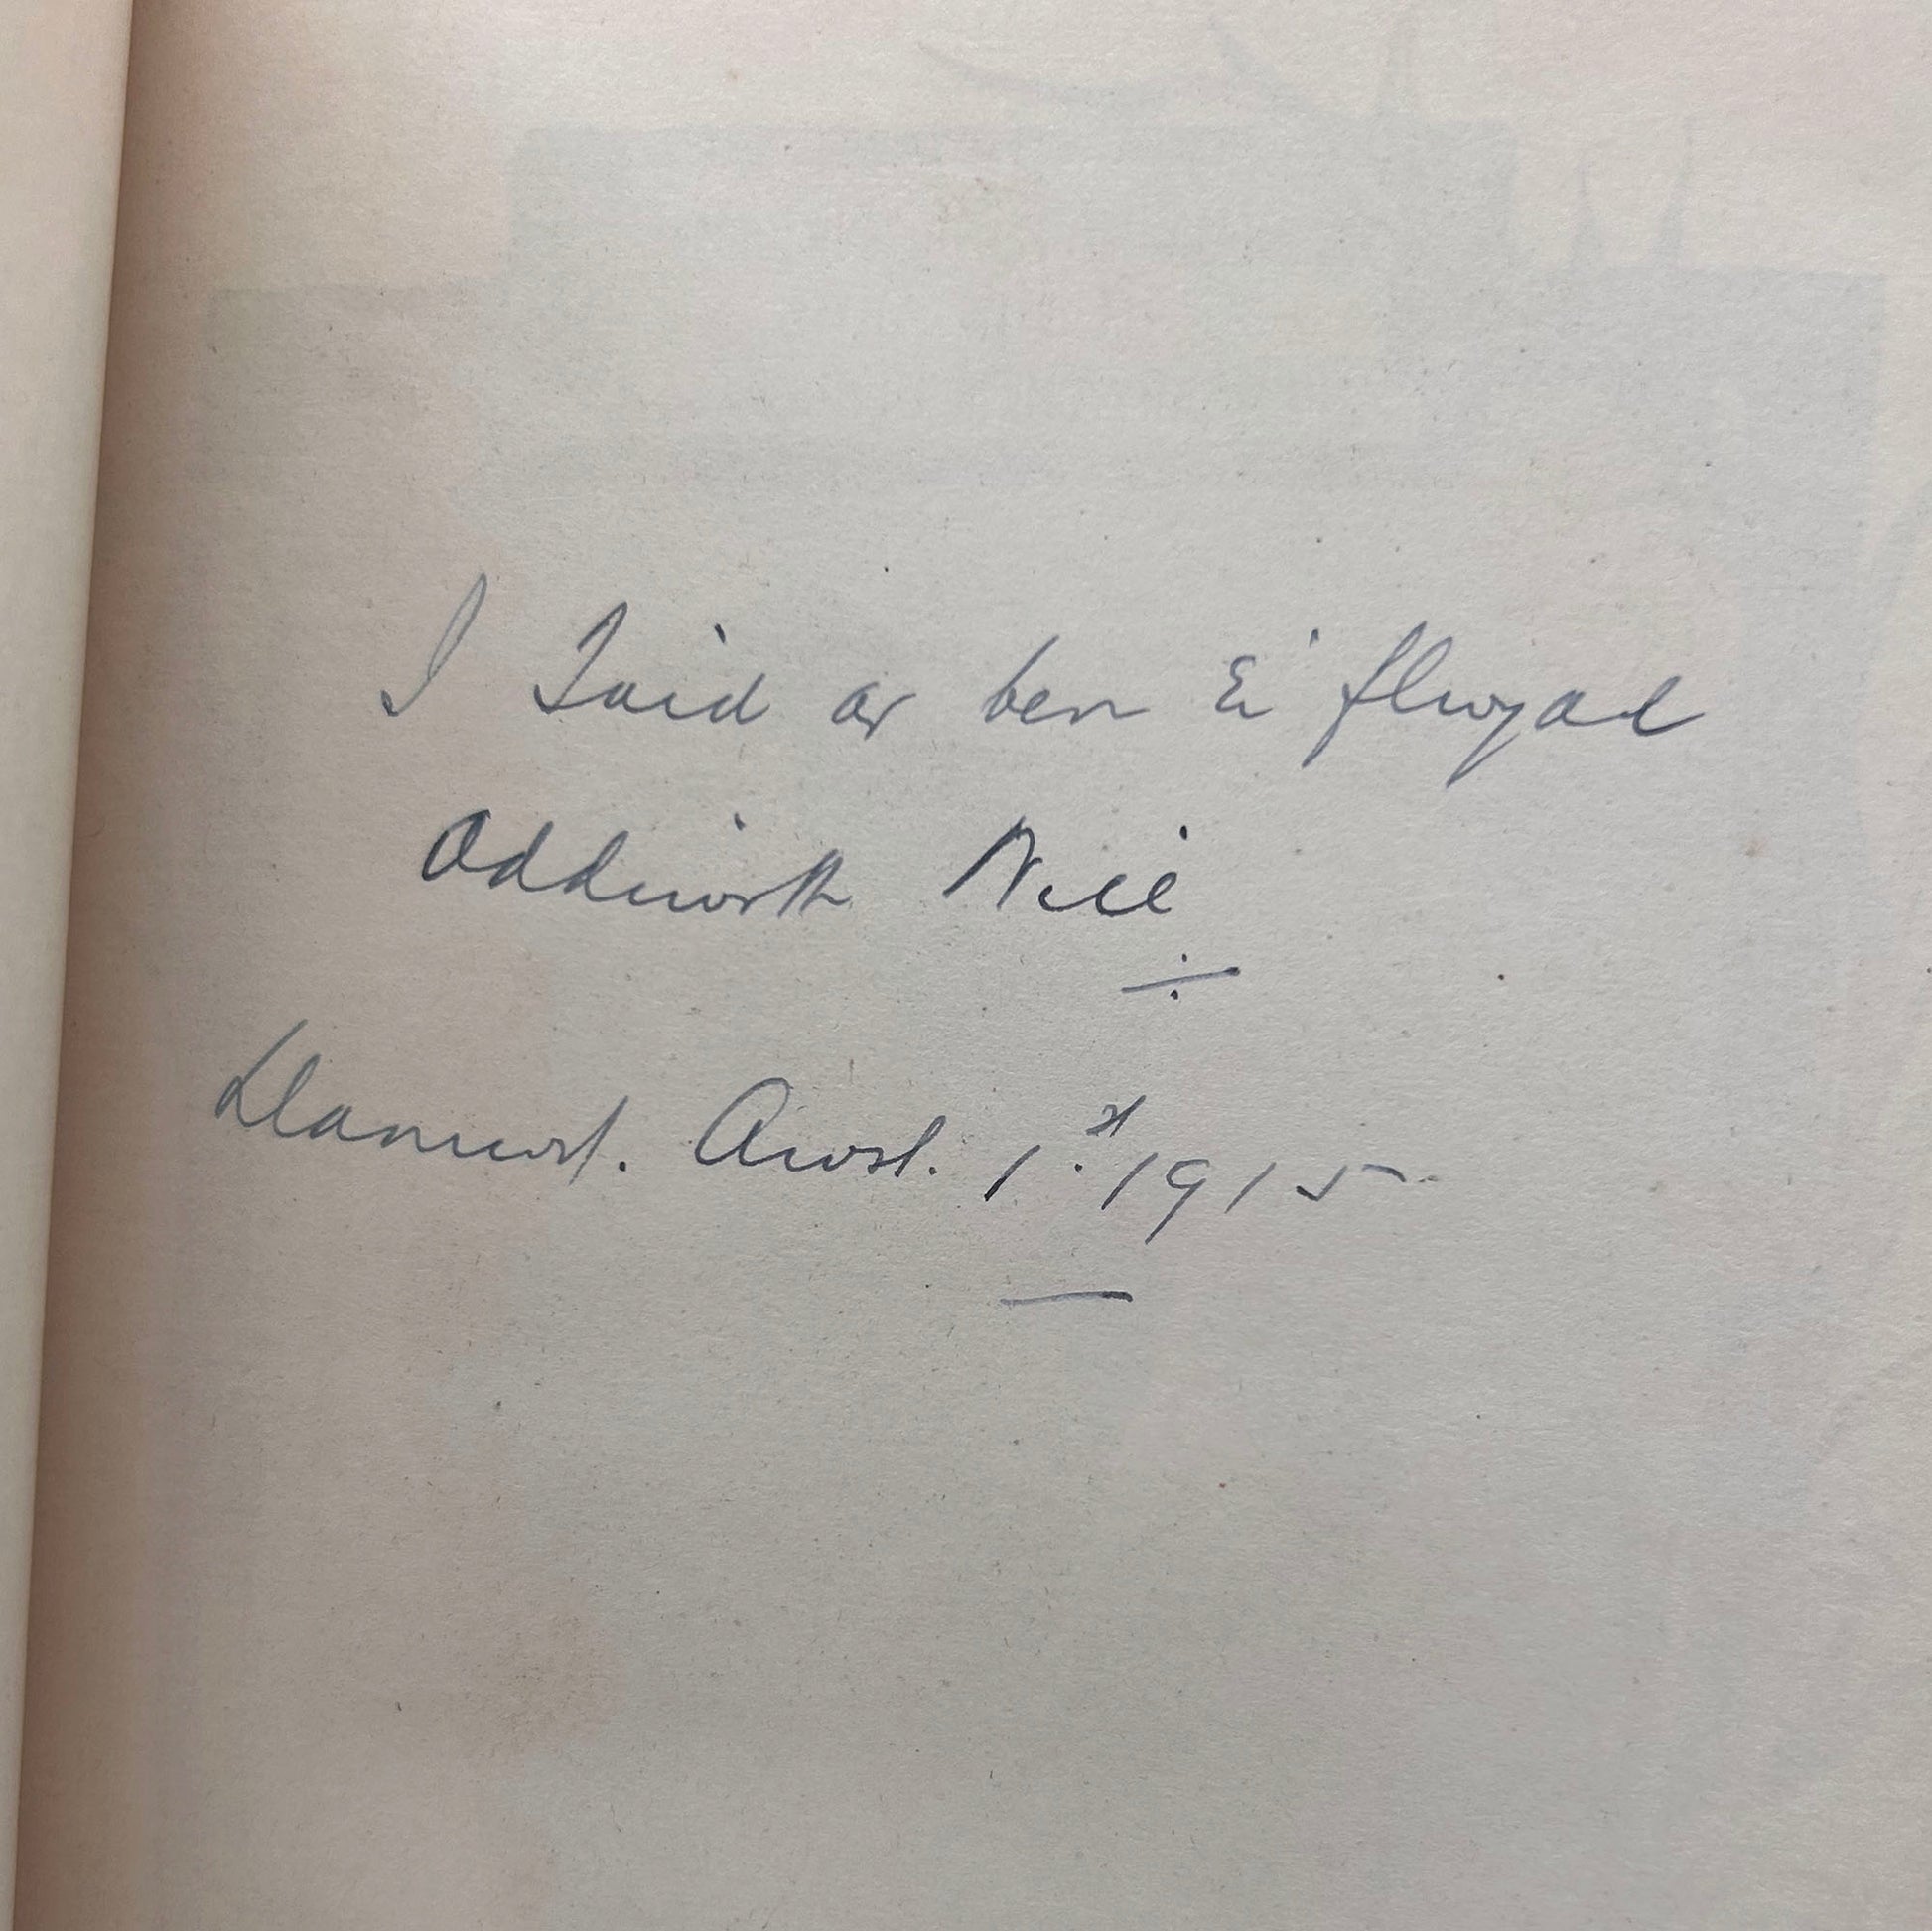 I Taid ar ben Ei flwydd
Oddiwrth Nell
Llanrwst. Awst. 1.st 1915